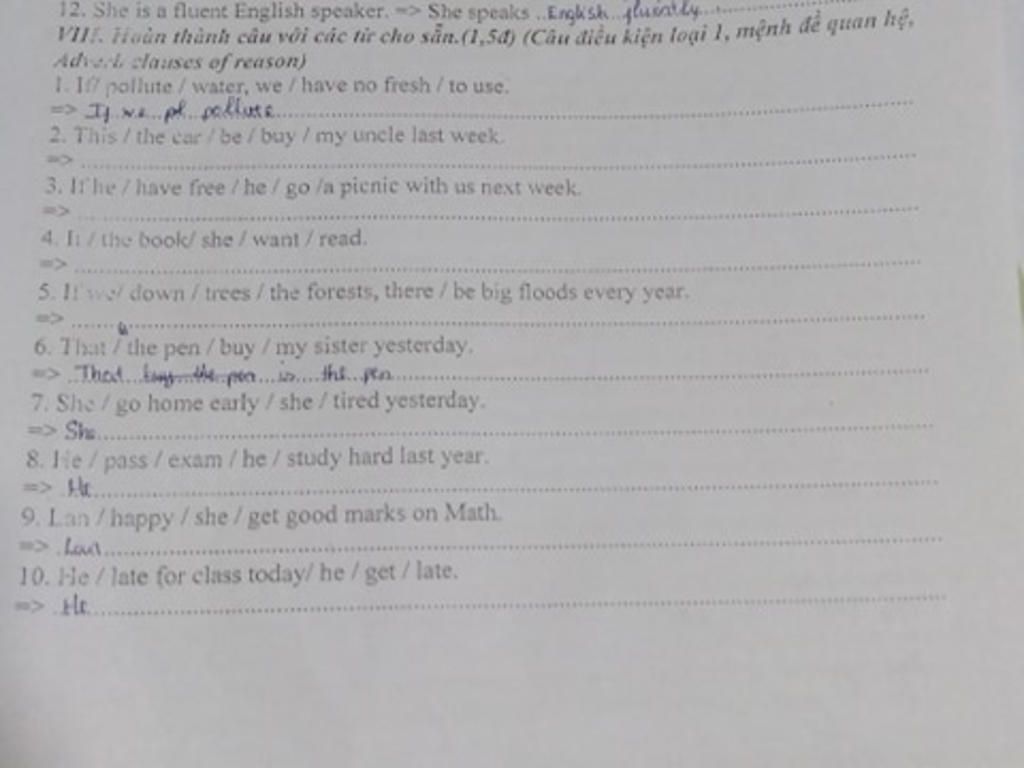 12. She is a fluent English speaker. => She speaks ..English..fluently....
VIII. Hoàn thành câu với các từ cho sẵn.(1,5đ) (Câu điều kiện loại 1, mệnh đề quan hệ,
Adverb clauses of reason)
1. If/ pollute / water, we / have no fresh / to use.
=> If we pl pollute
2. This / the car / be / buy / my uncle last week.
=>
3. If he / have free / he / go /a picnic with us next week.
=>
4. It / the book/ she / want / read.
=>
5. If we/ down / trees / the forests, there / be big floods every year.
=>
6. That / the pen / buy / my sister yesterday.
=> That buy the pen is the pen
7. She / go home early / she / tired yesterday.
=> She
8. He / pass / exam / he / study hard last year.
=> He
9. Lan / happy / she / get good marks on Math.
=> Lan
10. He / late for class today/ he / get / late.
=> He